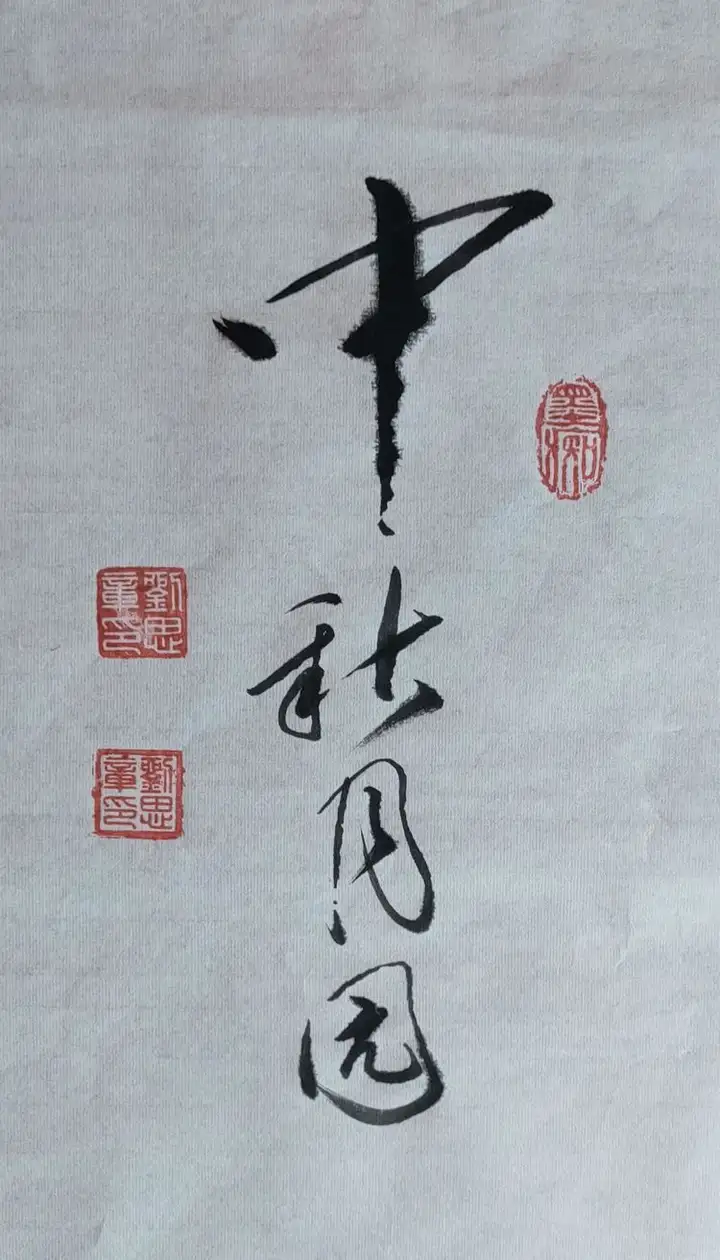 中秋月圆
墨痴
劉思章印
劉思章印